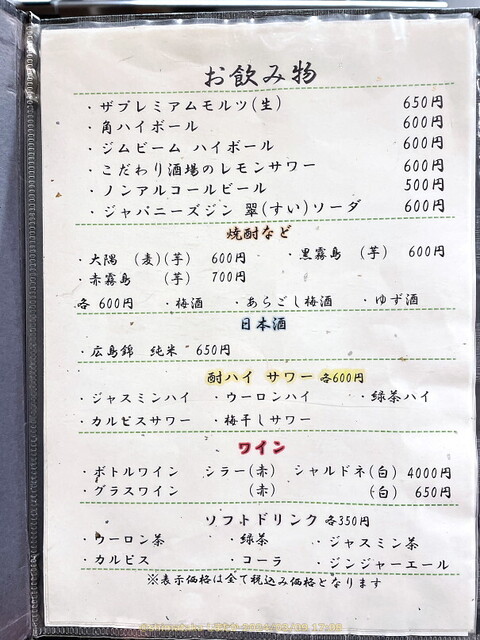 お飲み物
・ザプレミアムモルツ(生) 650円
・角ハイボール 600円
・ジムビーム ハイボール 600円
・こだわり酒場のレモンサワー 600円
・ノンアルコールビール 500円
・ジャパニーズジン 翠(すい)ソーダ 600円
焼酎など
・大隅 (麦)(芋) 600円 ・黒霧島 (芋) 600円
・赤霧島 (芋) 700円
各 600円 ・梅酒 ・あらごし梅酒 ・ゆず酒
日本酒
・広島錦 純米 650円
酎ハイ サワー 各600円
・ジャスミンハイ ・ウーロンハイ ・緑茶ハイ
・カルピスサワー ・梅干しサワー
ワイン
・ボトルワイン シラー(赤) シャルドネ(白) 4000円
・グラスワイン (赤) (白) 650円
ソフトドリンク 各350円
・ウーロン茶 ・緑茶 ・ジャスミン茶
・カルピス ・コーラ ・ジンジャーエール
※表示価格は全て税込み価格となります